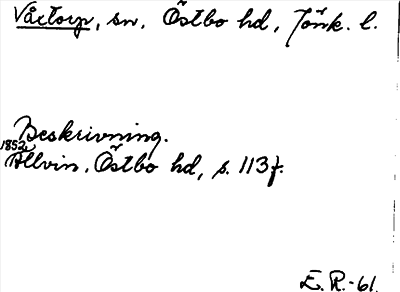 Våxtorp, sn. Östbo hd, Jönk. l.
Beskrivning.
1852
Allvin. Östbo hd, s. 113f.
E. R.-61.